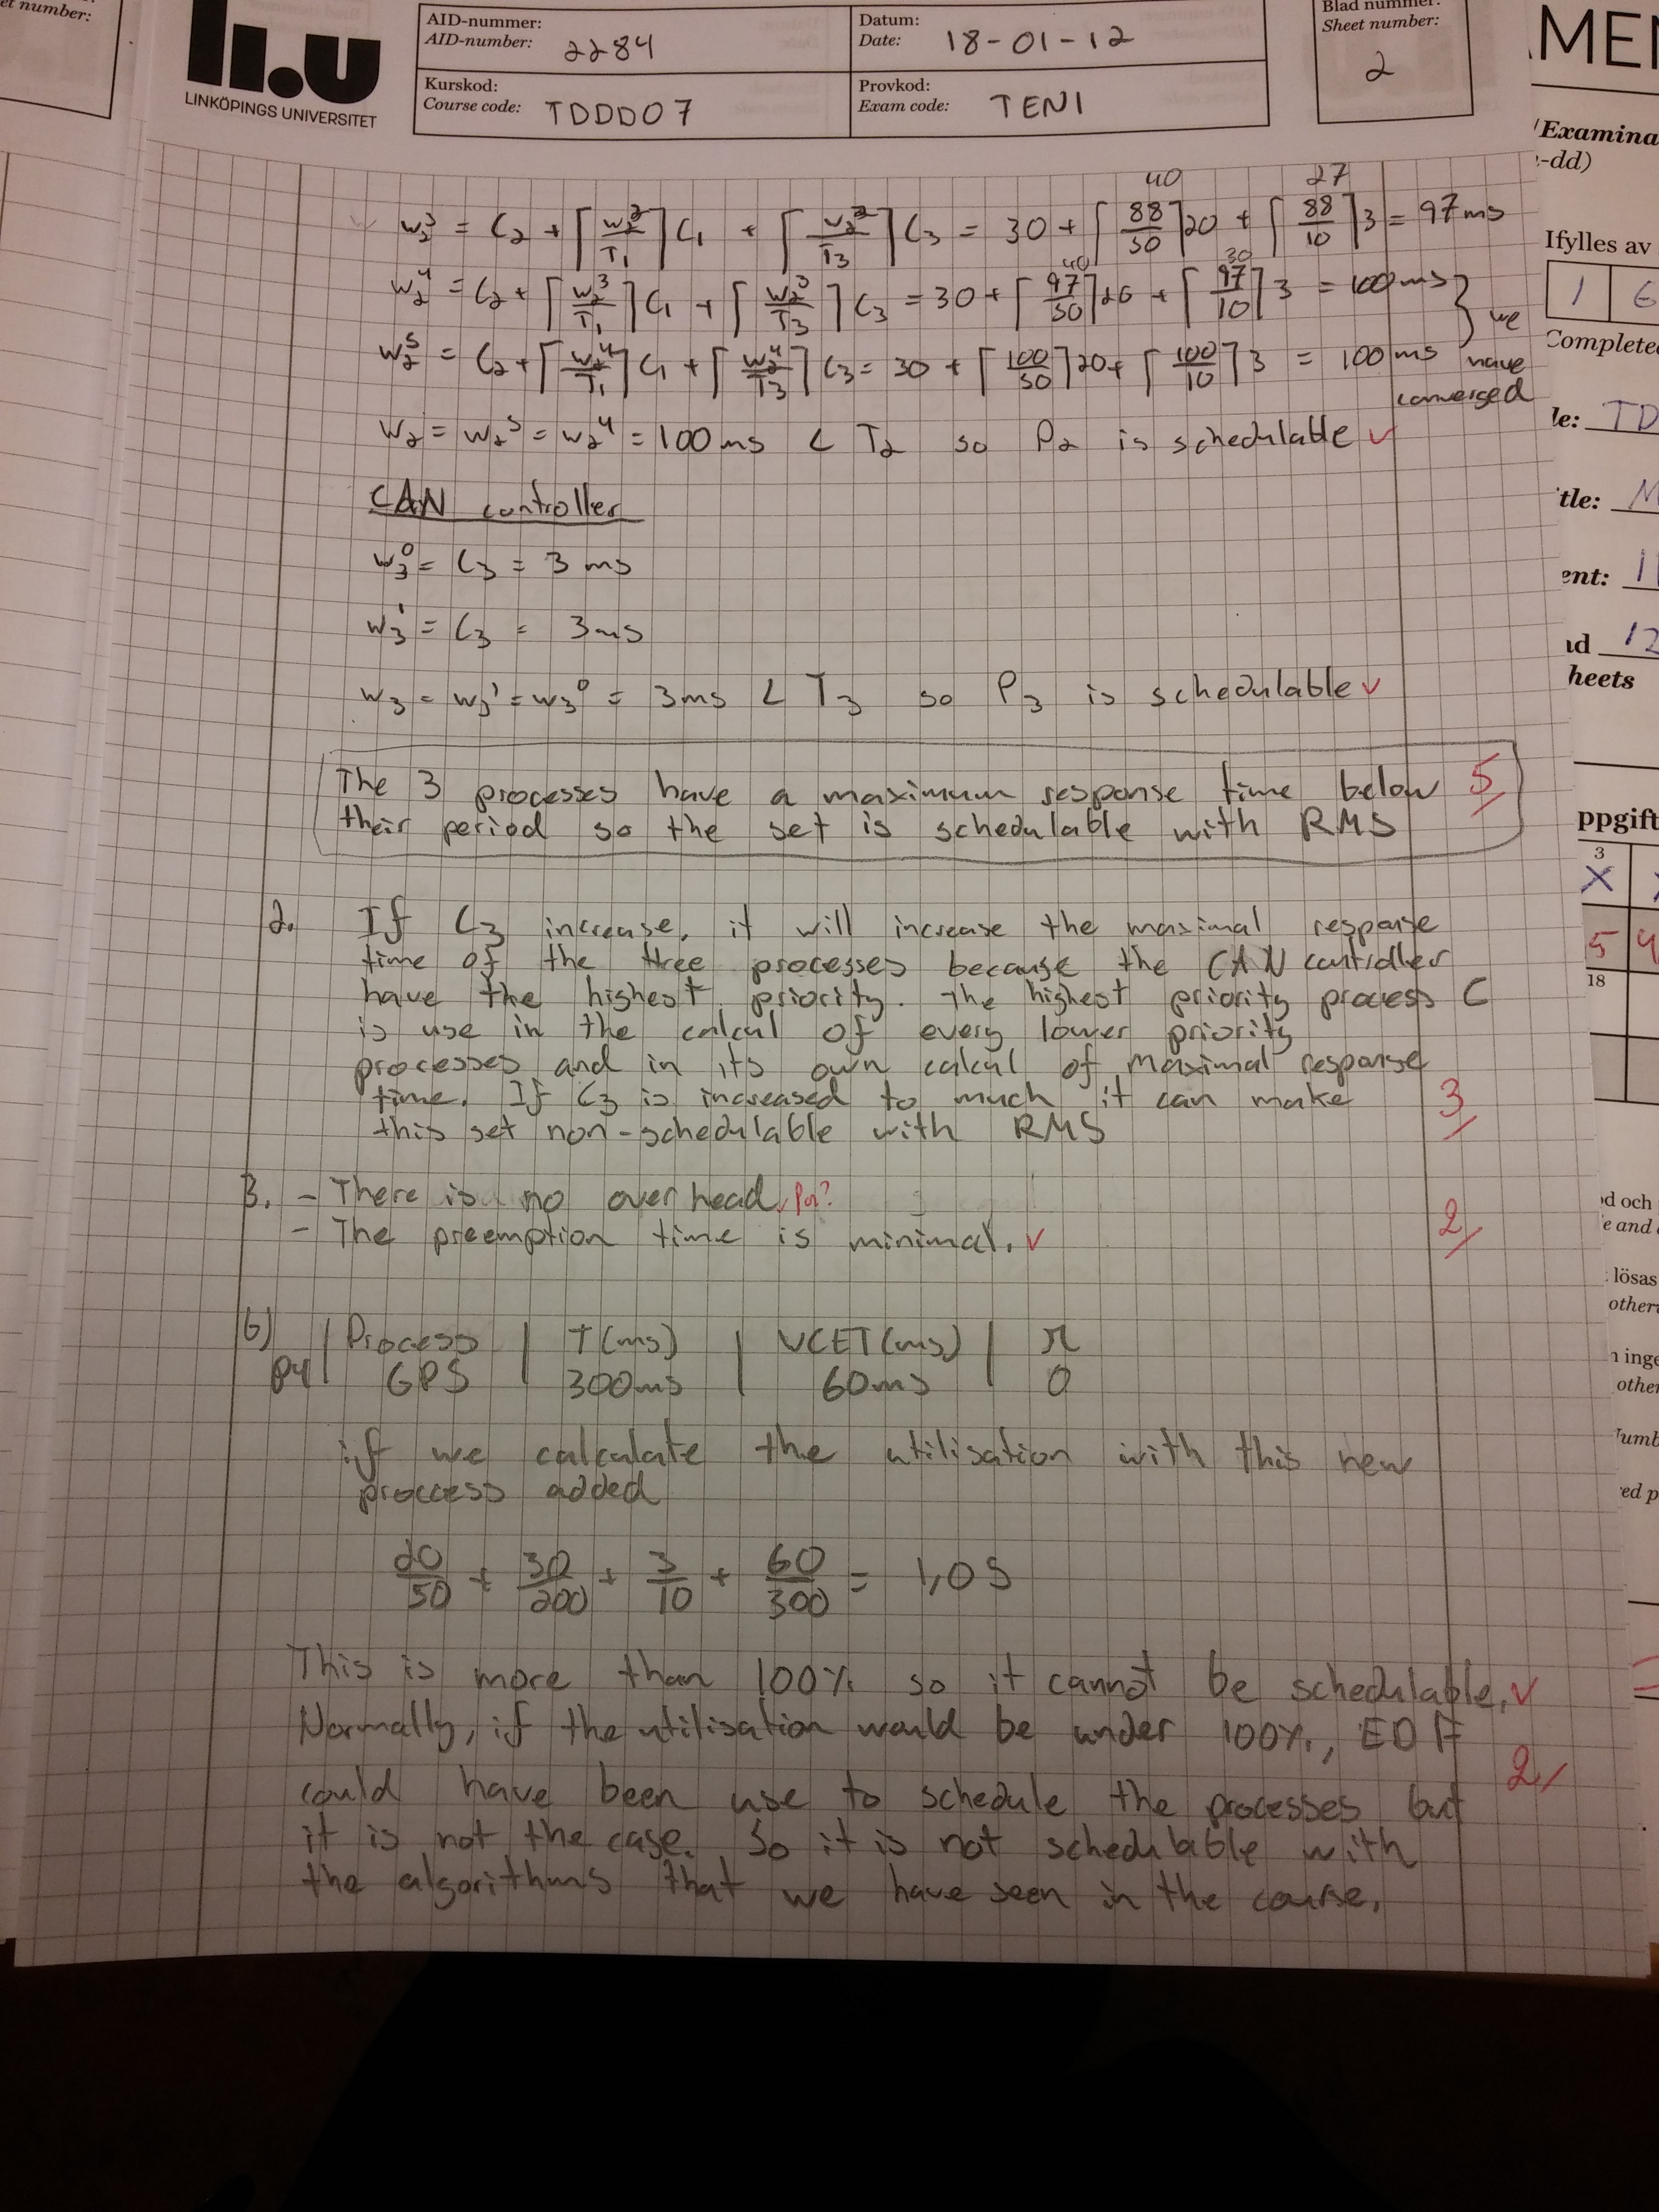 et number:
li.u
LINKÖPINGS UNIVERSITET
AID-nummer:
AID-number: 2284
Datum:
Date: 18-01-12
Blad nummer:
Sheet number:
2
Kurskod:
Course code: TDDD07
Provkod:
Exam code: TEN1
40 27
w₂³ = C₂ + ⌈w₂²/T₁⌉C₁ + ⌈w₂²/T₃⌉C₃ = 30 + ⌈88/50⌉20 + ⌈88/10⌉3 = 97ms
40 30
w₂⁴ = C₂ + ⌈w₂³/T₁⌉C₁ + ⌈w₂³/T₃⌉C₃ = 30 + ⌈97/50⌉20 + ⌈97/10⌉3 = 100ms
w₂⁵ = C₂ + ⌈w₂⁴/T₁⌉C₁ + ⌈w₂⁴/T₃⌉C₃ = 30 + ⌈100/50⌉20 + ⌈100/10⌉3 = 100ms
} we
have
converged
w₂ = w₂⁵ = w₂⁴ = 100ms < T₂ so P₂ is schedulable ✓
CAN controller
w₃⁰ = C₃ = 3 ms
w₃¹ = C₃ = 3ms
w₃ = w₃¹ = w₃⁰ = 3ms < T₃ so P₃ is schedulable ✓
The 3 processes have a maximum response time below 5/
their period so the set is schedulable with RMS
2. If C₃ increase, it will increase the maximal response
time of the three processes because the CAN controller
have the highest priority. The highest priority process C
is use in the calcul of every lower priority
processes and in its own calcul of maximal response
time. If C₃ is increased to much it can make 3/
this set non-schedulable with RMS
3. - There is no overhead
- The preemption time is minimal. ✓ 2/
b) | Process | T(ms) | WCET(ms) | π
P4 | GPS | 300ms | 60ms | 0
if we calculate the utilisation with this new
proccess added
20/50 + 30/200 + 3/10 + 60/300 = 1,05
This is more than 100% so it cannot be schedulable. ✓
Normally, if the utilisation would be under 100%, EDF
could have been use to schedule the processes but 2/
it is not the case. So it is not schedulable with
the algorithms that we have seen in the course.
AMEN
Examina
-dd)
Ifylles av
1 6
Complete
le: TD
tle: M
ent: 11
12
heets
ppgift
3
X
5 4
18
d och
e and
lösas
other
n inge
other
umb
ed p